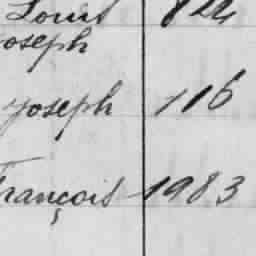 Louis 824
Joseph
Joseph 116
François 1983